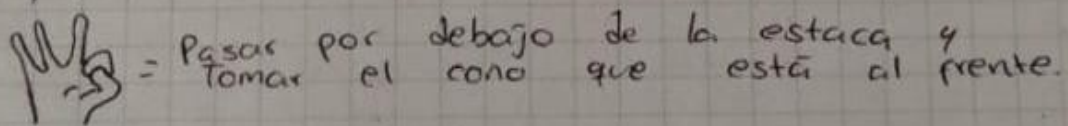 = Pasar por debajo de la estaca y
Tomar el cono que está al frente.